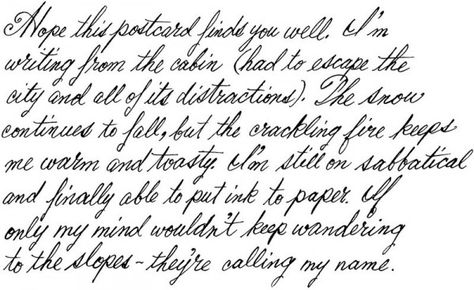 Hope this postcard finds you well. I'm
writing from the cabin (had to escape the
city and all of its distractions). The snow
continues to fall, but the crackling fire keeps
me warm and toasty. I'm still on sabbatical
and finally able to put ink to paper. If
only my mind wouldn't keep wandering
to the slopes - they're calling my name.